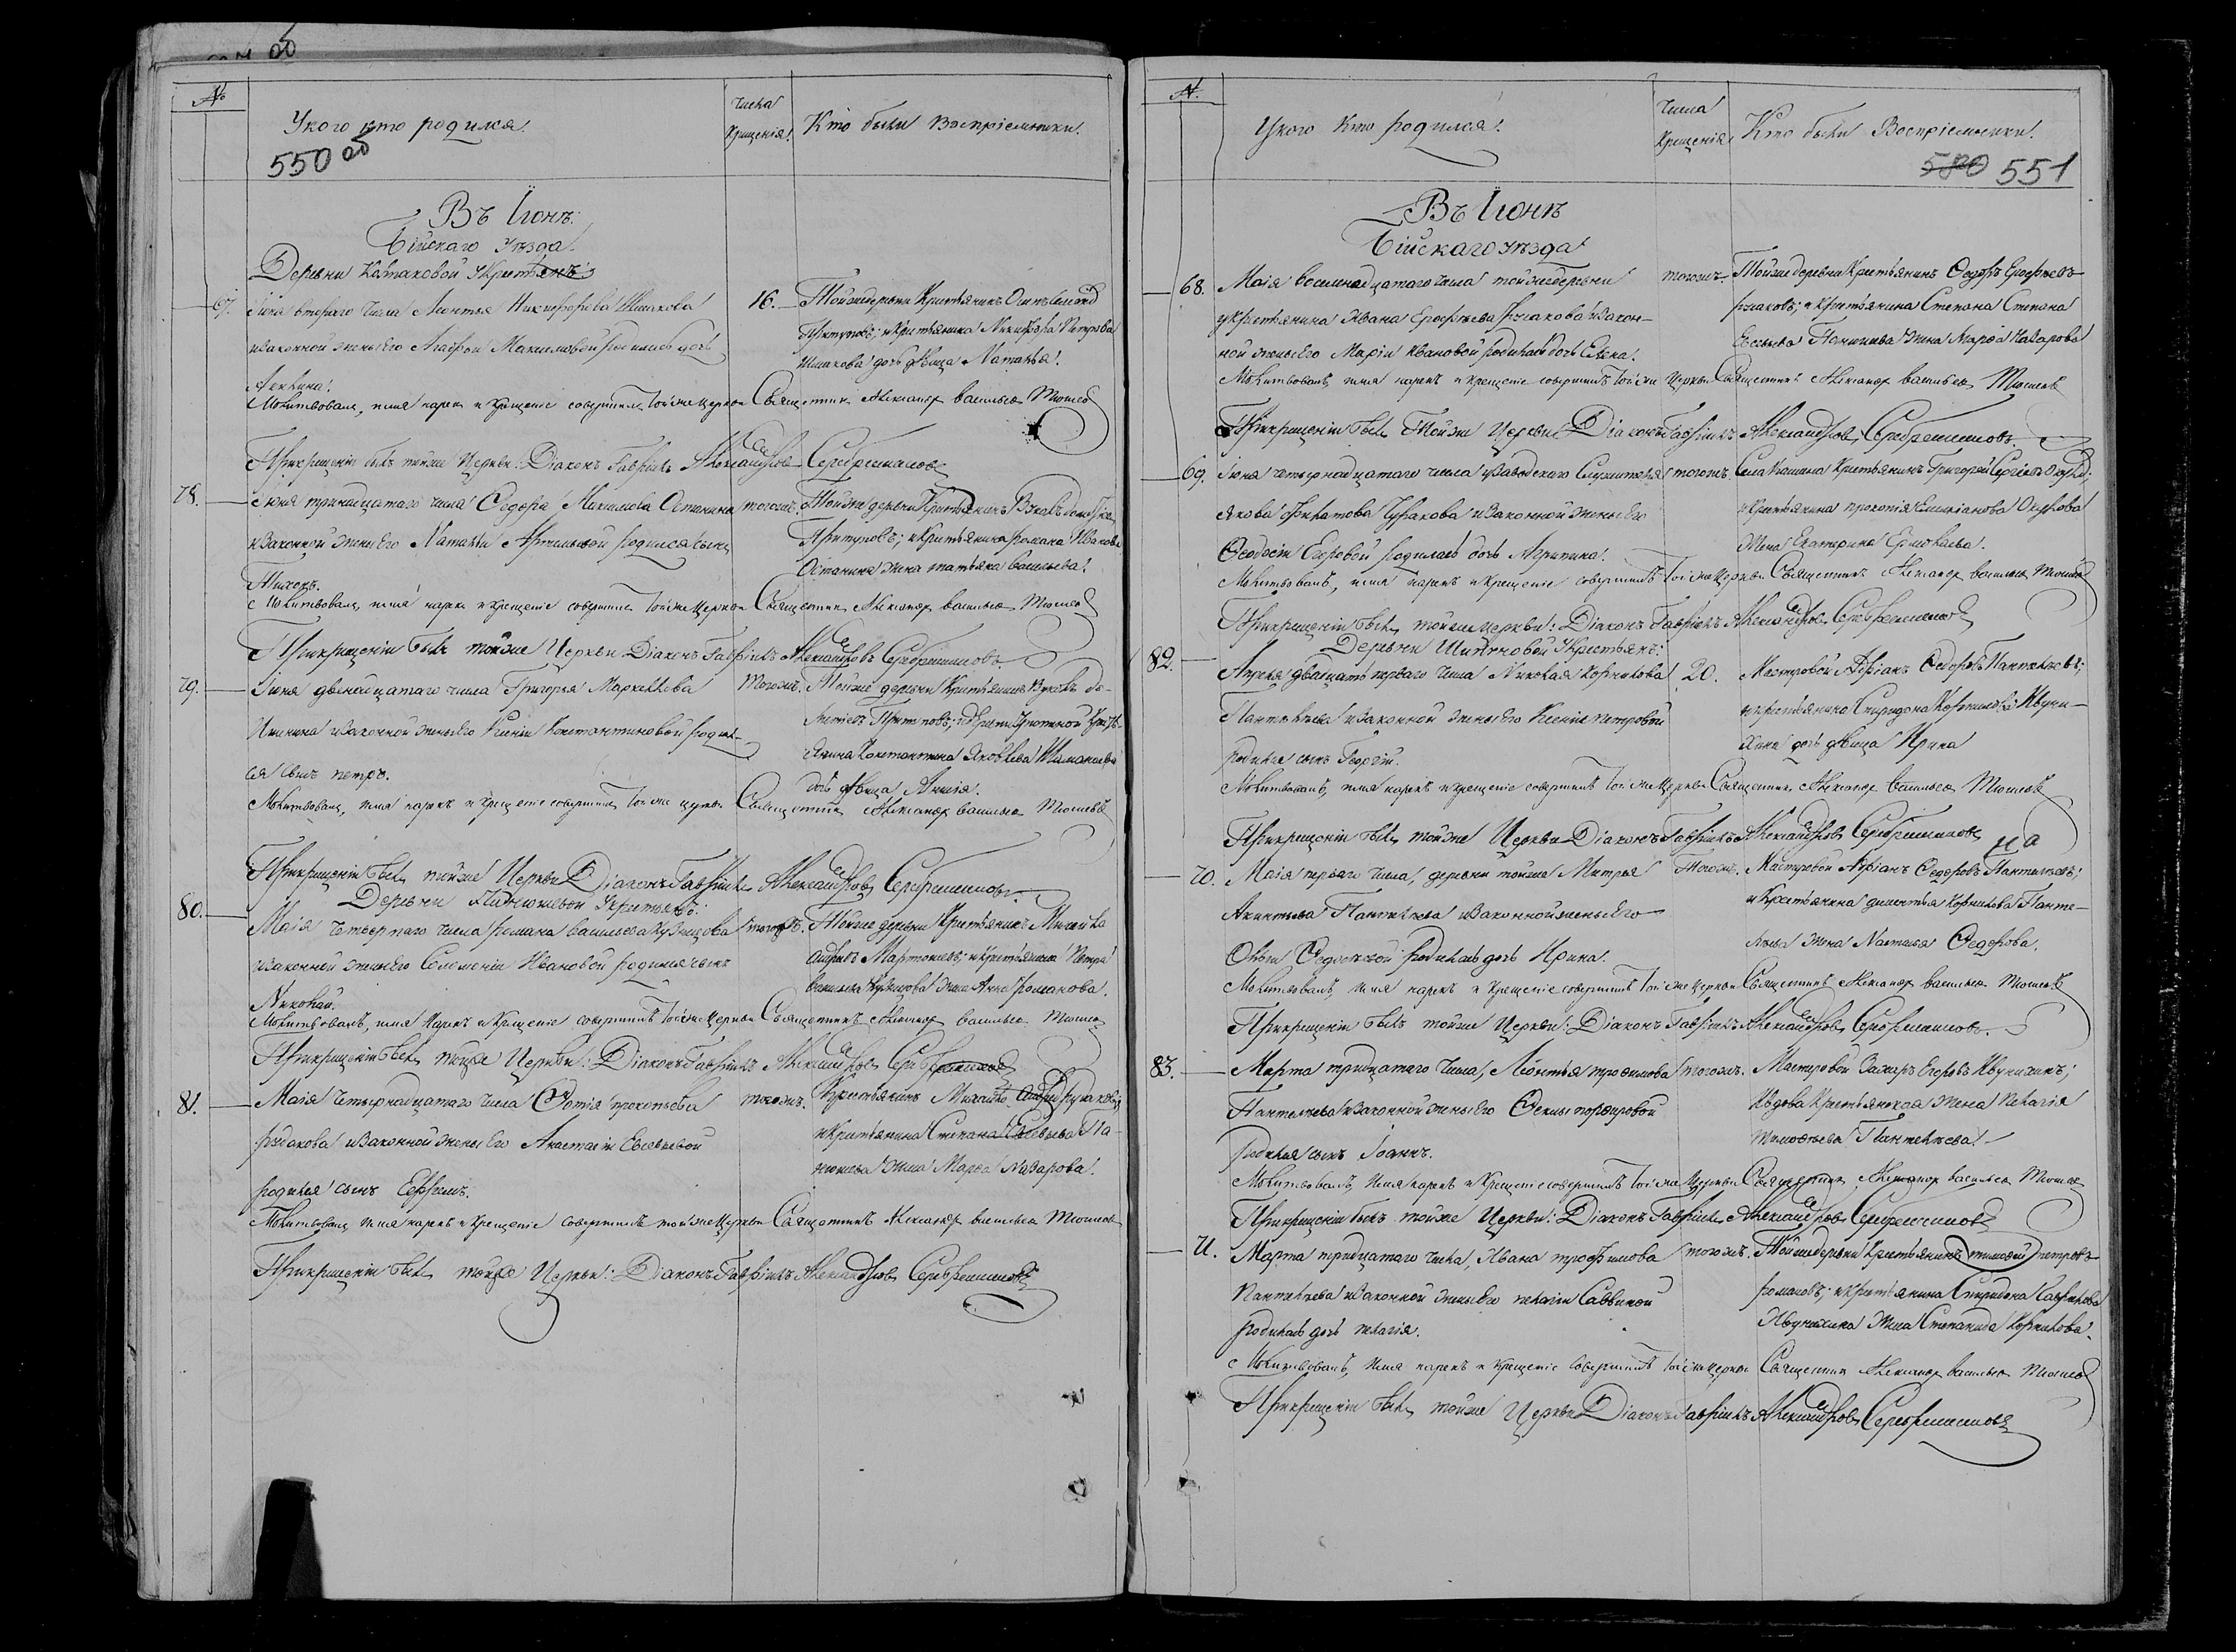 №
У кого кто родился.
Числа
Крещенія.
Кто были воспріемники.
550 об
Въ Іюнѣ:
Бійскаго уѣзда.
Деревни Колпаковой у Крестьянъ:
67.
Іюня втораго числа Леонтья Никифорова Шишакова
и законной жены Его Агафьи Максимовой родилась дочь
Акилина.
16.
Той же деревни Крестьянинъ
Притуповъ; и Крестьянина Никифора Петрова
Шишакова дочь девица Наталья.
Молитвовалъ, имя нарекъ и крещеніе совершилъ той же Церкви Священникъ Александръ Васильевъ Тюшевъ
При крещеніи былъ той же Церкви: Діаконъ Гавріилъ Александровъ Серебренниковъ
78.
Іюня тринадцатаго числа Федора Максимова Останина
и законной жены Его Натальи Артемьевой родился сынъ
Тихонъ.
тогожъ.
Той же деревни Крестьянинъ Вуколъ
Притуповъ; и Крестьянина Романа Иванова
Останина жена Татьяна Васильева.
Молитвовалъ, имя нарекъ и крещеніе совершилъ той же Церкви Священникъ Александръ Васильевъ Тюшевъ
При крещеніи былъ той же Церкви Діаконъ Гавріилъ Александровъ Серебренниковъ
79.
Іюня двенадцатаго числа Григорья Маркелова
и законной жены Его Ксеніи Константиновой родил-
ся сынъ Петръ.
тогожъ.
Той же деревни Крестьянинъ Вуколъ де-
Притуповъ; и деревни Кресть-
янина Константина Яковлева
дочь девица Анисія.
Молитвовалъ, имя нарекъ и крещеніе совершилъ той же церкви Священникъ Александръ Васильевъ Тюшевъ
При крещеніи былъ той же Церкви Діаконъ Гавріилъ Александровъ Серебренниковъ
Деревни Панюшевой у Крестьянъ:
80.
Маія четвертаго числа Романа Васильева Кузнецова
и законной жены Его Соломеніи Ивановой родился сынъ
Николай.
тогожъ.
Той же деревни Крестьянинъ Михайло
Мартюшевъ; и Крестьянина Петра
Васильева Кузнецова жена Анна Романова.
Молитвовалъ, имя нарекъ и Крещеніе совершилъ той же Церкви Священникъ Александръ Васильевъ Тюшевъ
При крещеніи былъ той же Церкви: Діаконъ Гавріилъ Александровъ Серебренниковъ
81.
Маія четырнадцатаго числа Фотія Прокопьева
Рудакова и законной жены Его Анастасіи Евсевьевой
родился сынъ Ефремъ.
тогожъ.
Крестьянинъ Михайло
и Крестьянина Степана Евсевьева Па-
нюшева жена Марѳа Назарова.
Молитвовалъ имя нарекъ и крещеніе совершилъ той же Церкви Священникъ Александръ Васильевъ Тюшевъ
При крещеніи былъ той же Церкви: Діаконъ Гавріилъ Александровъ Серебренниковъ
№.
У кого Кто родился.
Числа
Крещенія
Кто были Воспріемники.
580 551
Въ Іюнѣ
Бійскаго уѣзда
68.
Маія восемнадцатаго числа той же деревни
у Крестьянина Ивана Ерофеева Рудакова и закон-
ной жены Его Маріи Ивановой родилась дочь Елена.
тогожъ.
Той же деревни Крестьянинъ Федоръ Ерофеевъ
Рудаковъ; и Крестьянина Степана Степана
Евсевьева Панюшева жена Марѳа Назарова
Молитвовалъ имя нарекъ и крещеніе совершилъ той же Церкви Священникъ Александръ Васильевъ Тюшевъ
При крещеніи былъ Той же Церкви Діаконъ Гавріилъ Александровъ Серебренниковъ.
69.
Іюня четырнадцатаго числа у Заводскаго Служителя
Якова Филатова Чубакова и законной жены Его
Феодосіи Егоровой родилась дочь Агрипина.
тогожъ.
Села Крестьянинъ Григорей Сергеевъ
и Крестьянина Прокопія Емильянова Окулова
жена Екатерина Ермолаева.
Молитвовалъ, имя нарекъ и Крещеніе совершилъ той же Церкви Священникъ Александръ Васильевъ Тюшевъ
При крещеніи былъ той же церкви: Діаконъ Гавріилъ Александровъ Серебренниковъ
Деревни Шипуновой у Крестьянъ:
82.
Апреля двадцать перваго числа Николая Корнилова
Пантелеева и законной жены Его Ксеніи Петровой
родился сынъ Георгій.
20.
Мастеровой Адріанъ Федоровъ Пантелеевъ;
и Крестьянина Спиридона Корнилова Ивуни-
хина дочь девица Ирина
Молитвовалъ, имя нарекъ и крещеніе совершилъ той же Церкви Священникъ Александръ Васильевъ Тюшевъ
При крещеніи былъ той же Церкви Діаконъ Гавріилъ Александровъ Серебренниковъ
70.
Маія перваго числа, деревни той же Митрья
Акинтьева Пантелеева и законной жены Его
Ольги Федосеевой родилась дочь Ирина.
тогожъ.
Мастеровой Адріанъ Федоровъ Пантелеевъ;
и Крестьянина Дементья Корнилова Панте-
леева жена Настасья Федорова.
Молитвовалъ, имя нарекъ и крещеніе совершилъ той же Церкви Священникъ Александръ Васильевъ Тюшевъ
При крещеніи былъ той же Церкви: Діаконъ Гавріилъ Александровъ Серебренниковъ.
83.
Марта тридцатаго числа, Леонтья Трофимова
Пантелеева и законной жены Его Феклы Порфировой
родился сынъ Іоаннъ.
тогожъ.
Мастеровой Захаръ Егоровъ Ивунихинъ;
и вдова Крестьянская жена Пелагія
Тимофеева Пантелеева.
Молитвовалъ, имя нарекъ и крещеніе совершилъ той же Церкви Священникъ Александръ Васильевъ Тюшевъ
При крещеніи былъ той же Церкви: Діаконъ Гавріилъ Александровъ Серебренниковъ
71.
Марта тридцатаго числа, Ивана Трофимова
Пантелеева и законной жены Его Пелагіи Саввиной
родилась дочь Пелагія.
тогожъ.
Той же деревни Крестьянинъ Тимофей Петровъ
Романовъ; и Крестьянина Спиридона Гаврилова
Ивунихина жена Степанида Корнилова.
Молитвовалъ, имя нарекъ и Крещеніе совершилъ той же Церкви Священникъ Александръ Васильевъ Тюшевъ
При крещеніи былъ той же Церкви Діаконъ Гавріилъ Александровъ Серебренниковъ